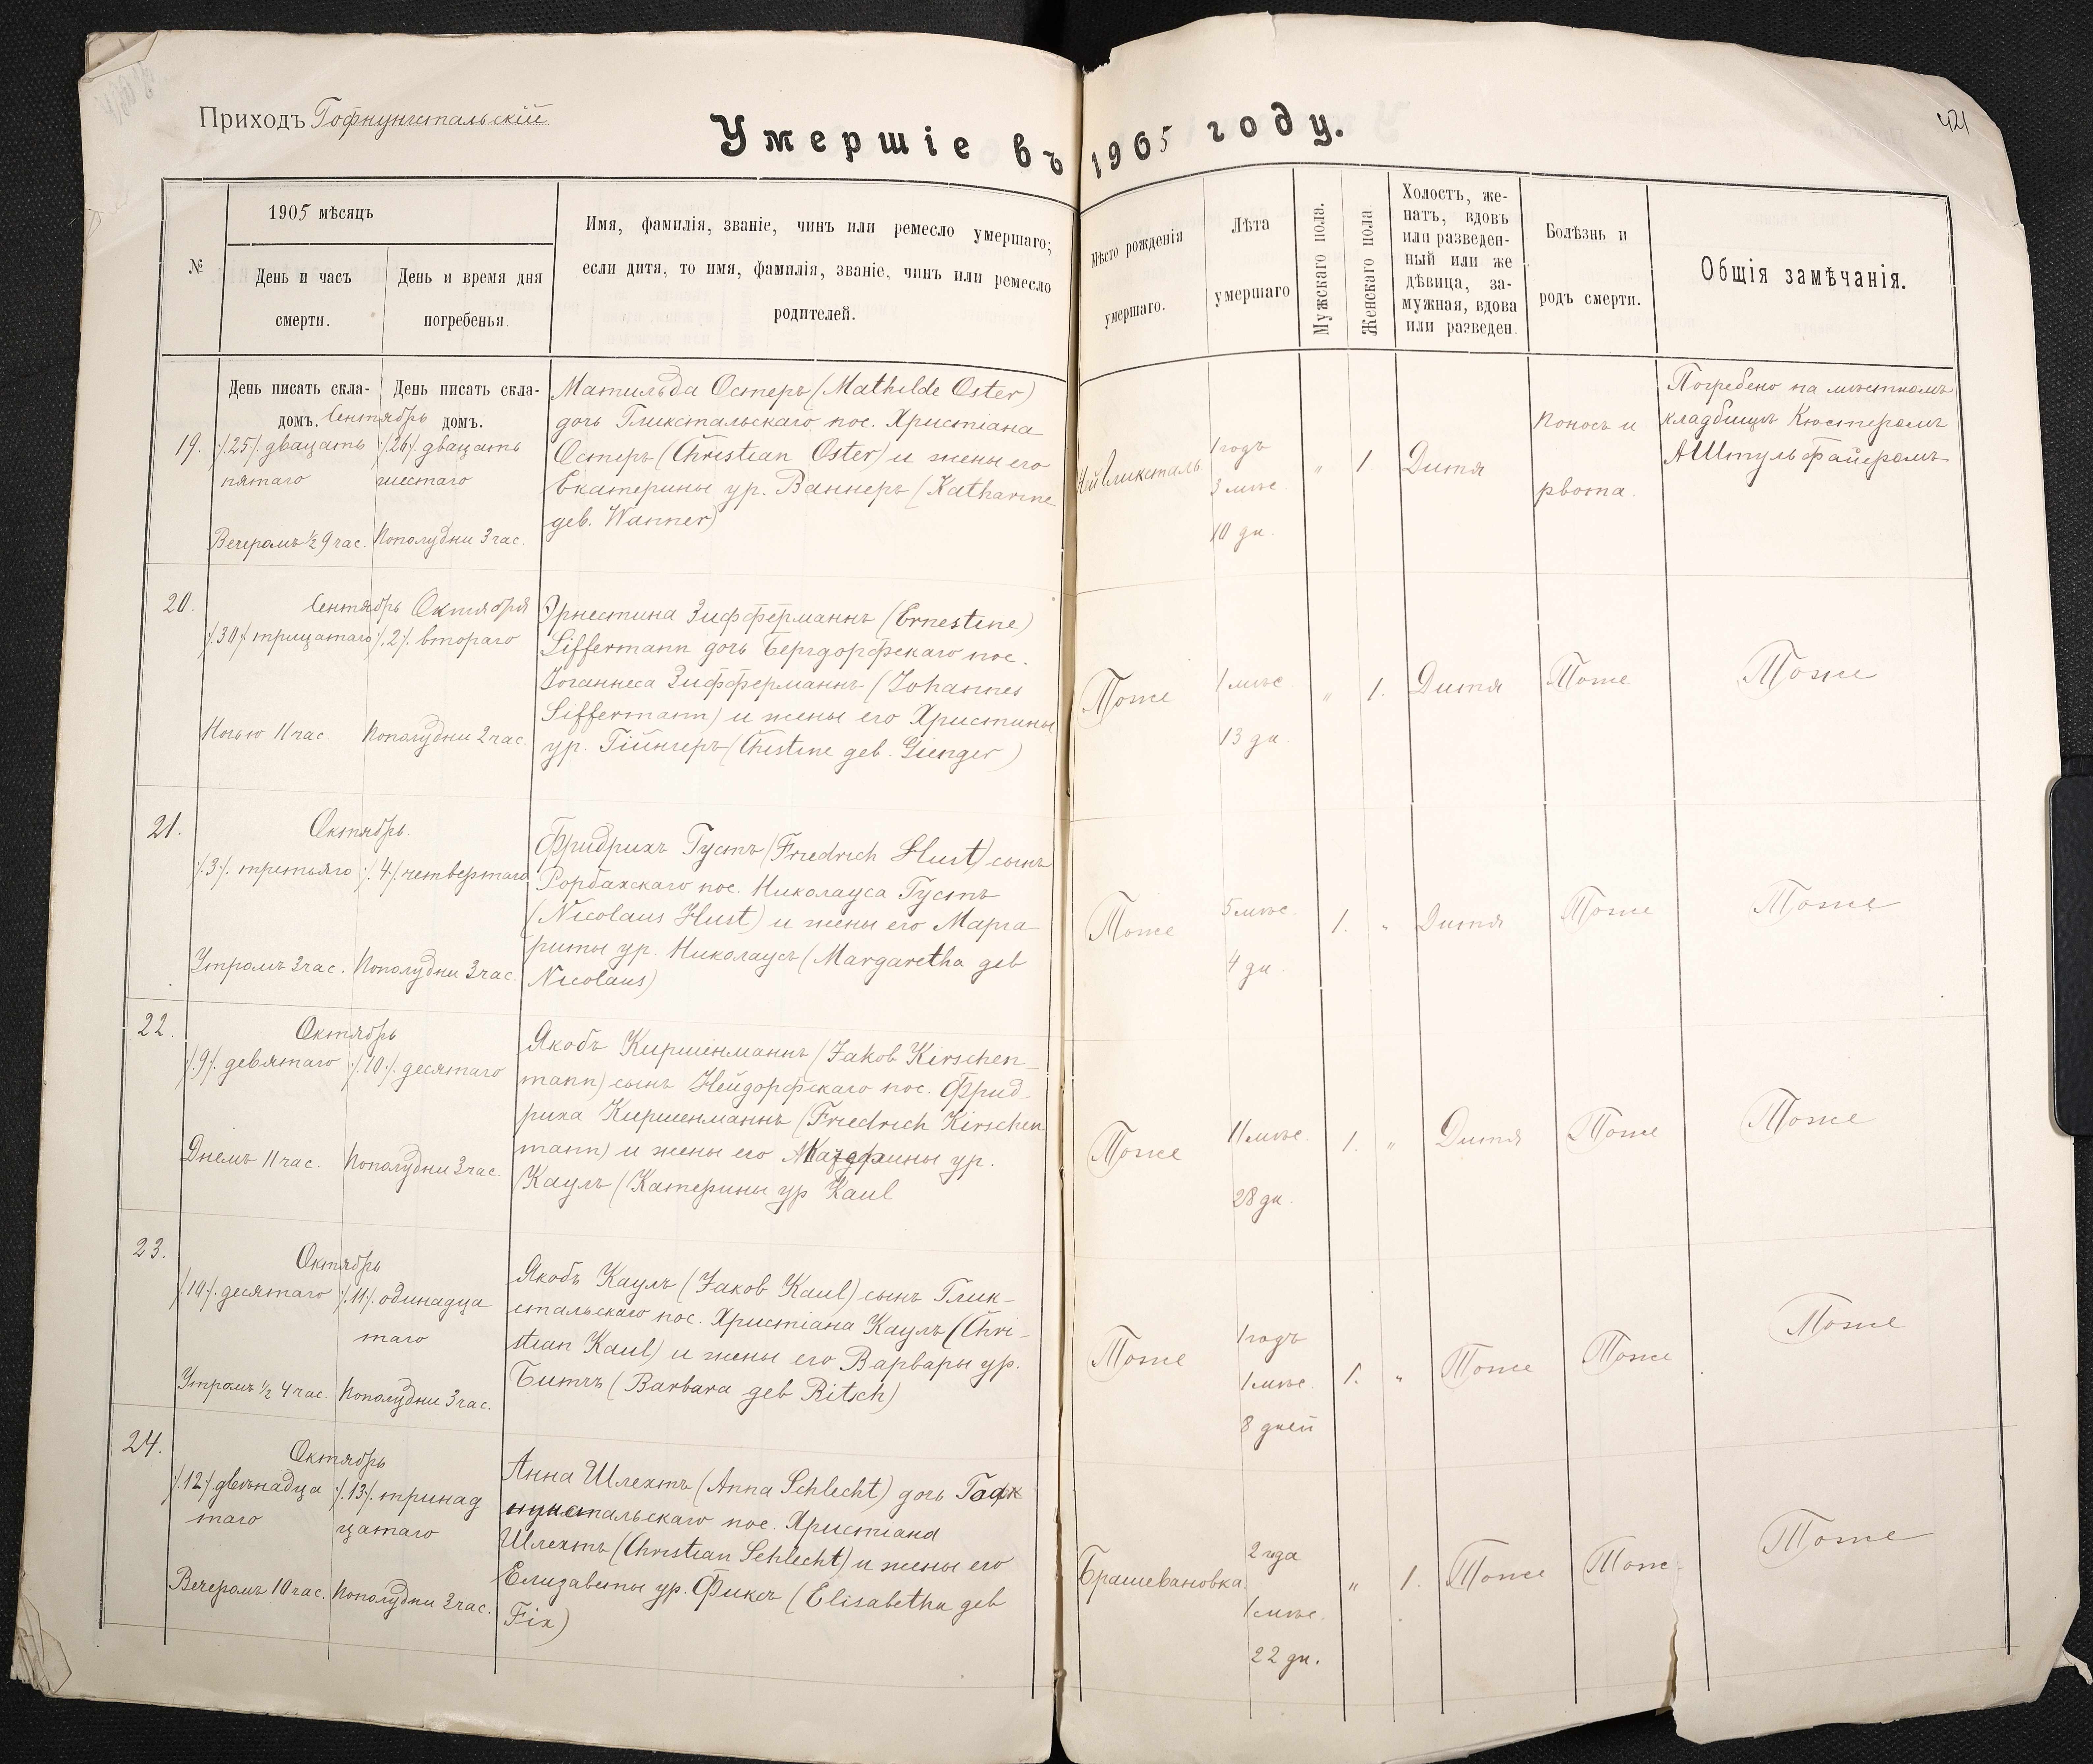 421
Приходъ Гофнунгстальскій
Умершіе въ 1905 году.
№
1905 мѣсяцъ
День и часъ
смерти.
День и время дня
погребенья.
Имя, фамилія, званіе, чинъ или ремесло умершаго;
если дитя, то имя, фамилія, званіе, чинъ или ремесло
родителей.
Мѣсто рожденія
умершаго.
Лѣта
умершаго
Мужскаго пола.
Женскаго пола
Холостъ, же-
натъ, вдовъ
или разведен-
ный или же
дѣвица, за-
мужная, вдова
или разведен.
Болѣзнь и
родъ смерти.
Общія замѣчанія.
День писать скла-
домъ.
День писать скла-
домъ.
19.
Сентябрь
/.25/. двацать
пятаго
Вечеромъ ½ 9 час.
/.26/. двацать
шестаго
Пополудни 3 час.
Матильда Остеръ (Mathilde Oster)
дочь Гликстальскаго пос. Христіана
Остеръ (Christian Oster) и жены его
Екатерины ур. Ваннеръ (Katharine
geb. Wanner)
Ней Гликсталь
1 годъ
3 мѣс.
10 дн.
"
1
Дитя
Поносъ и
рвота.
Погребено на мѣстномъ
кладбищѣ Кюстеромъ
А Штульфайеромъ
20.
Сентябрь
/.30/. трицатаго
Ночью 11 час.
Октября
/.2/. втораго
Пополудни 2 час.
Эрнестина Зифферманнъ (Ernestine)
Siffermann дочь Бергдорфскаго пос.
Іоганнеса Зифферманнъ (Johannes
Siffermann) и жены его Христины
ур. Гійнгеръ (Christine geb. Gienger)
Тоже
1 мѣс
13 дн.
"
1.
Дитя
Тоже
Тоже
21.
Октябрь.
/.3/. третьяго
Утромъ 3 час.
/.4/. четвертаго
Пополудни 3 час.
Фридрихъ Густъ (Friedrich Hust) сынъ
Рорбахскаго пос. Николауса Густъ
(Nicolaus Hust) и жены его Марга
риты ур. Николаусъ (Margaretha geb
Nicolaus)
Тоже
5 мѣс.
4 дн.
1.
"
Дитя
Тоже
Тоже
22.
Октябрь
/.9/. девятаго
Днемъ 11 час.
/.10/. десятаго
Пополудни 3 час.
Якобъ Киршенманнъ (Jakob Kirschen-
mann) сынъ Нейдорфскаго пос. Фрид-
риха Киршенманнъ (Friedrich Kirschen
mann) и жены его ур.
Каулъ (Катерины ур Kaul
Тоже
11 мѣс.
28 дн.
1.
"
Дитя
Тоже
Тоже
23.
Октябрь
/.10/. десятаго
Утромъ ½ 4 час.
/.11/. одинадца
таго
Пополудни 3 час.
Якобъ Каулъ (Jakob Kaul) сынъ Глик-
стальскаго пос. Христіана Каулъ (Chri-
stian Kaul) и жены его Варвары ур.
Битчъ (Barbara geb Bitsch)
Тоже
1 годъ
1 мѣс.
8 дней
1.
"
Тоже
Тоже
Тоже
24.
Октябрь
/.12/. двѣнадца
таго
Вечеромъ 10 час.
/.13/. тринад
цатаго
Пополудни 3 час.
Анна Шлехтъ (Anna Schlecht) дочь
стальскаго пос. Христіана
Шлехтъ (Christian Schlecht) и жены его
Елизаветы ур. Фиксъ (Elisabetha geb
Fix)
Брашевановка.
2 года
1 мѣс.
22 дн.
"
1.
Тоже
Тоже
Тоже